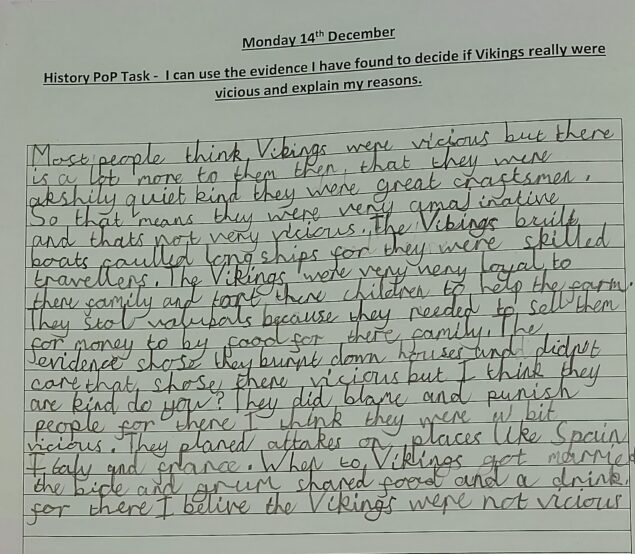 Monday 14th December
History PoP Task - I can use the evidence I have found to decide if Vikings really were
vicious and explain my reasons.
Most people think Vikings were vicious but there
is a lot more to them then, that they were
akshily quiet kind they were great craftsmen.
So that means they were very amajinative
and thats not very vicious. The Vikings built
boats caulled longships for they were skilled
travellers. The Vikings were very very loyal to
there family and tort there children to help the farm.
They stol valubals because they needed to sell them
for money to by food for there family. The
evidence shose they burnt down houses and didnot
care that, shose there vicious but I think they
are kind do you? They did blame and punish
people for there I think they were a bit
vicious. They planed attakes on places like Spain
Italy and france. When to Vikings got married
the bide and grum shared food and a drink.
for there I belive the Vikings were not vicious